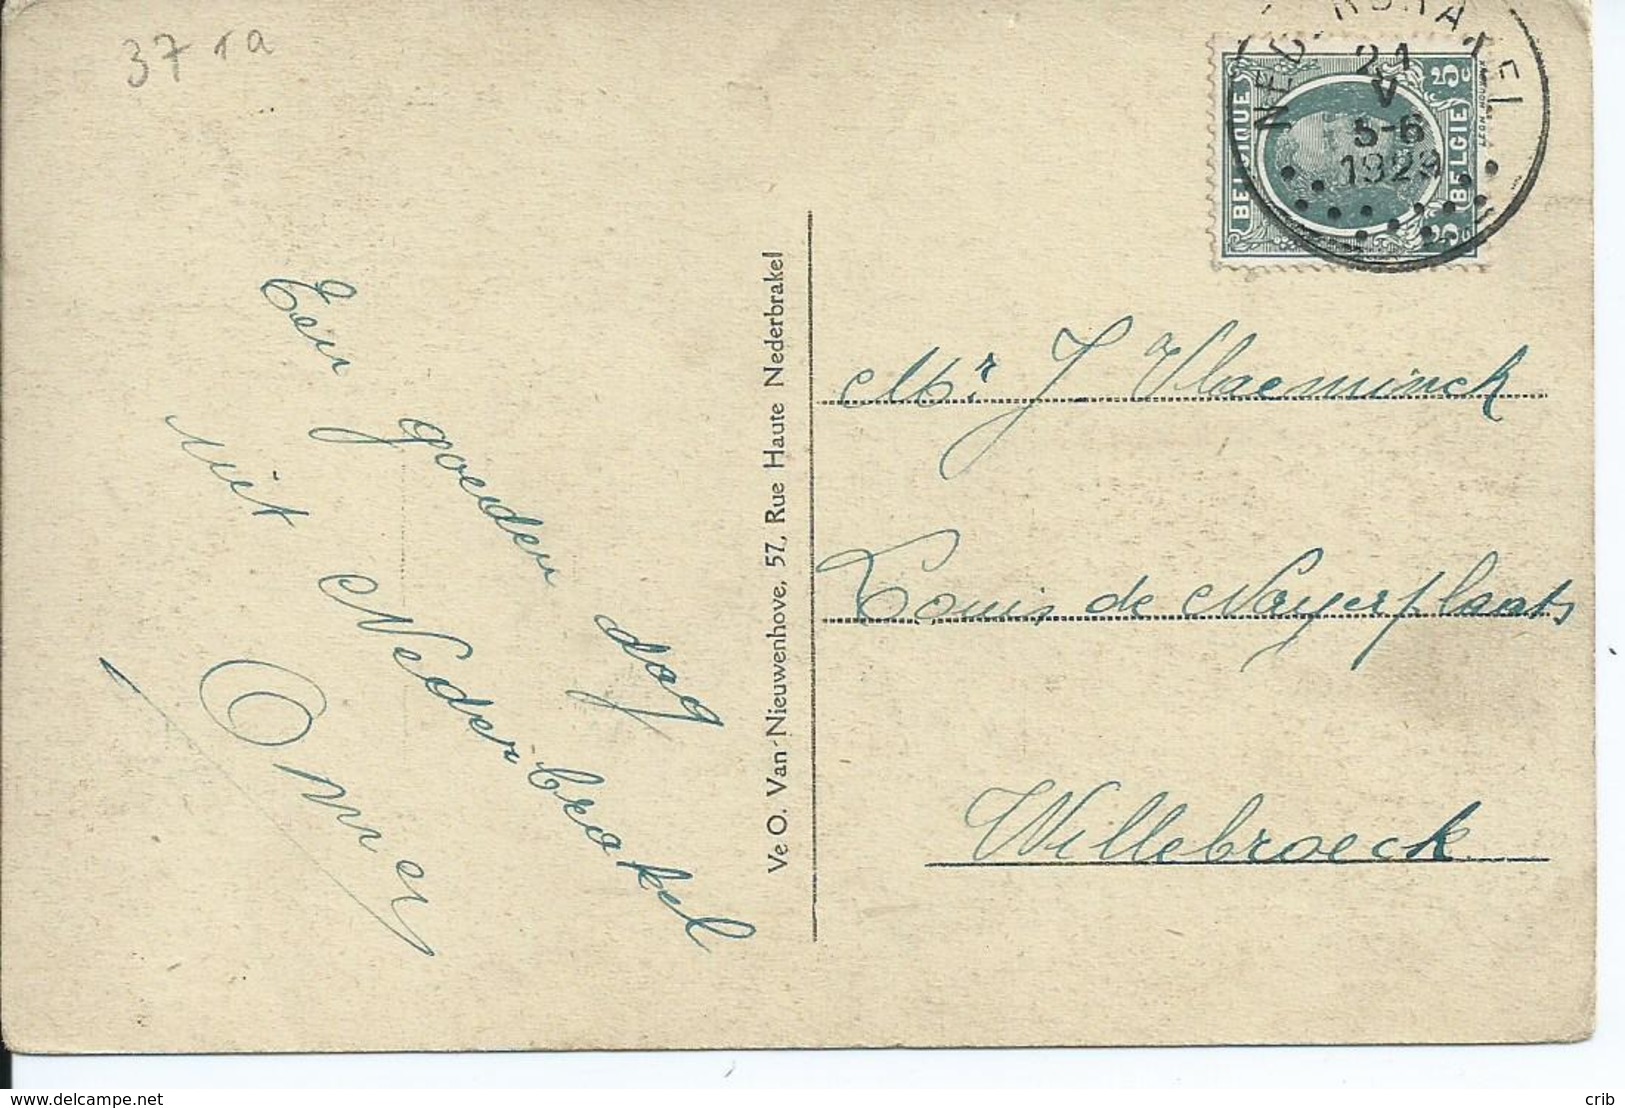 37 1a
NEDERBRAKEL
21
V
5-6
1929
BELGIQUE
5 C
BELGIE
5 C
Een goeden dag
uit Nederbrakel
Omer
Ve O. Van-Nieuwenhove, 57, Rue Haute Nederbrakel
Mr J Vlaeminck
Louis de Nayerplaats
Willebroeck
www.delcampe.net
crib